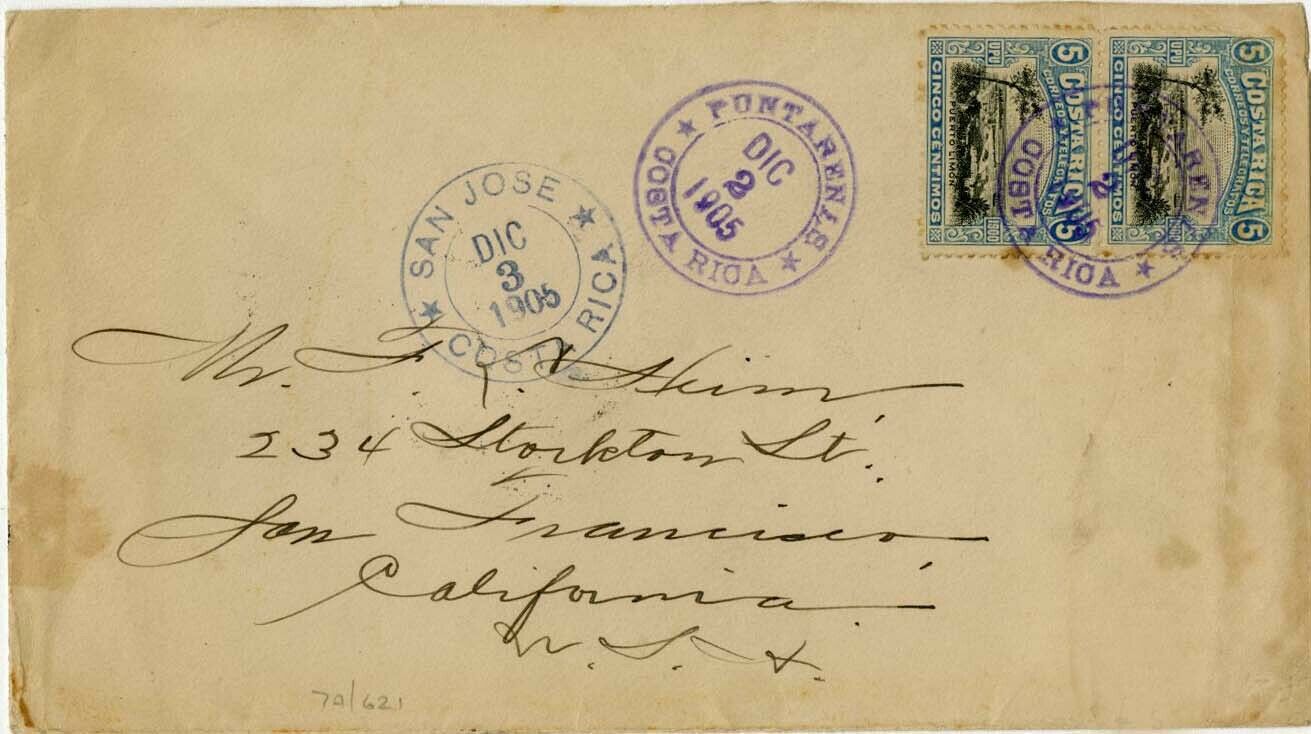 5 COSTA RICA 5
UPU CORREOS Y TELEGRAFOS 1900
PUERTO LIMON
CINCO CENTIMOS
5 COSTA RICA 5
UPU CORREOS Y TELEGRAFOS
PUERTO LIMON
CINCO CENTIMOS
★ PUNTARENTS ★ COSTA RICA
DIC
2
1905
COSTA RICA ★
2
SAN JOSE ★ COSTA RICA ★
DIC
3
1905
Mr. F. X Heim
234 Stockton St.
San Francisco
California
U. S. A.
7A/621